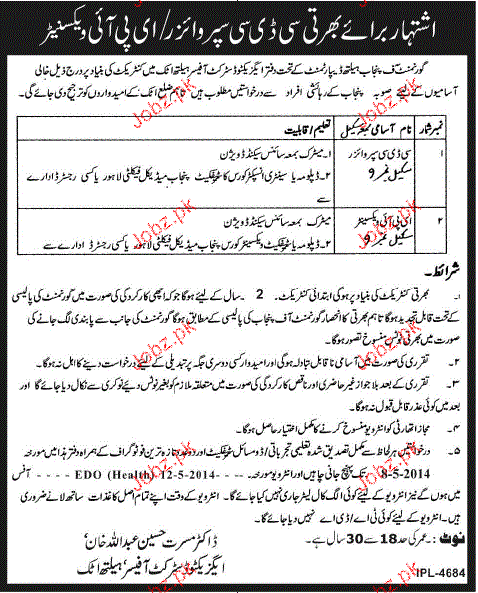 اشتہار برائے بھرتی سی ڈی سی سپروائزر/ ای پی آئی ویکسنیٹر
گورنمنٹ آف پنجاب ہیلتھ ڈیپارٹمنٹ کے تحت دفتر ایگزیکٹو ڈسٹرکٹ آفیسر ہیلتھ اٹک میں کنٹریکٹ کی بنیاد پر درج ذیل خالی
آسامیوں کے لیئے صوبہ پنجاب کے رہائشی افراد سے درخواستیں مطلوب ہیں تاہم ضلع اٹک کے امیدواروں کو ترجیح دی جائے گی۔
نمبر شمار نام آسامی بمعہ سکیل تعلیم / قابلیت
۱ سی ڈی سی سپروائزر سکیل نمبر 9
۱۔ میٹرک بمعہ سائنس سیکنڈ ڈویژن
۲۔ ڈپلومہ یا سینٹری انسپکٹر کورس کا سرٹیفکیٹ پنجاب میڈیکل فیکلٹی لاہور یا کسی رجسٹرڈ ادارے سے
۲ ای پی آئی ویکسنیٹر سکیل نمبر 9
میٹرک بمعہ سائنس سیکنڈ ڈویژن
۲۔ ڈپلومہ یا سرٹیفکیٹ ویکسنیٹر کورس پنجاب میڈیکل فیکلٹی لاہور یا کسی رجسٹرڈ ادارے سے
شرائط۔
۱۔ بھرتی کنٹریکٹ کی بنیاد پر ہوگی ابتدائی کنٹریکٹ 2 سال کے لیئے ہوگا جو کہ اچھی کارکردگی کی صورت میں گورنمنٹ کی پالیسی
کے تحت قابل تجدید ہوگا تاہم بھرتی کا انحصار گورنمنٹ آف پنجاب کی پالیسی کے مطابق ہوگا گورنمنٹ کی جانب سے پابندی لگ جانے کی
صورت میں بھرتی نوٹس منسوخ تصور ہوگا۔
۲۔ تقرری کی صورت میں آسامی نا قابل تبادلہ ہوگی اور امیدوار کسی دوسری جگہ پر تبدیلی کے لیئے درخواست دینے کا اہل نہ ہوگا۔
۳۔ تقرری کے بعد بلا جواز غیر حاضری اور ناقص کارکردگی کی صورت میں متعلقہ ملازم کو بغیر نوٹس دیئے نوکری سے نکال دیا جائے گا اور
بعد میں کوئی عذر قابل قبول نہ ہوگا۔
۴۔ مجاز اتھارٹی کو انٹرویو منسوخ کرنے کا مکمل اختیار حاصل ہوگا۔
۵۔ درخواستیں ہر لحاظ سے مکمل تصدیق شدہ تعلیمی تجرباتی / ڈومیسائل سرٹیفکیٹ اور دو عدد تازہ ترین فوٹو گراف کے ہمراہ دفتر ہذا میں مورخہ
8-5-2014 تک پہنچ جانی چاہیں اور انٹرویو مورخہ۔ 12-5-2014 ---- EDO (Health) آفس
میں ہوں گے نیز انٹرویو کے لیئے کوئی الگ کال لیٹر جاری نہیں کیا جائے گا۔ انٹرویو کے وقت اپنے تمام اصل کاغذات ساتھ لانے ضروری
ہیں۔ انٹرویو کے لیئے کوئی ٹی اے / ڈی اے نہیں دیا جائے گا۔
نوٹ:۔ عمر کی حد 18 سے 30 سال ہے۔
ڈاکٹر مسرت حسین عبداللہ خان،
ایگزیکٹو ڈسٹرکٹ آفیسر، ہیلتھ اٹک
IPL-4684
Jobz.pk